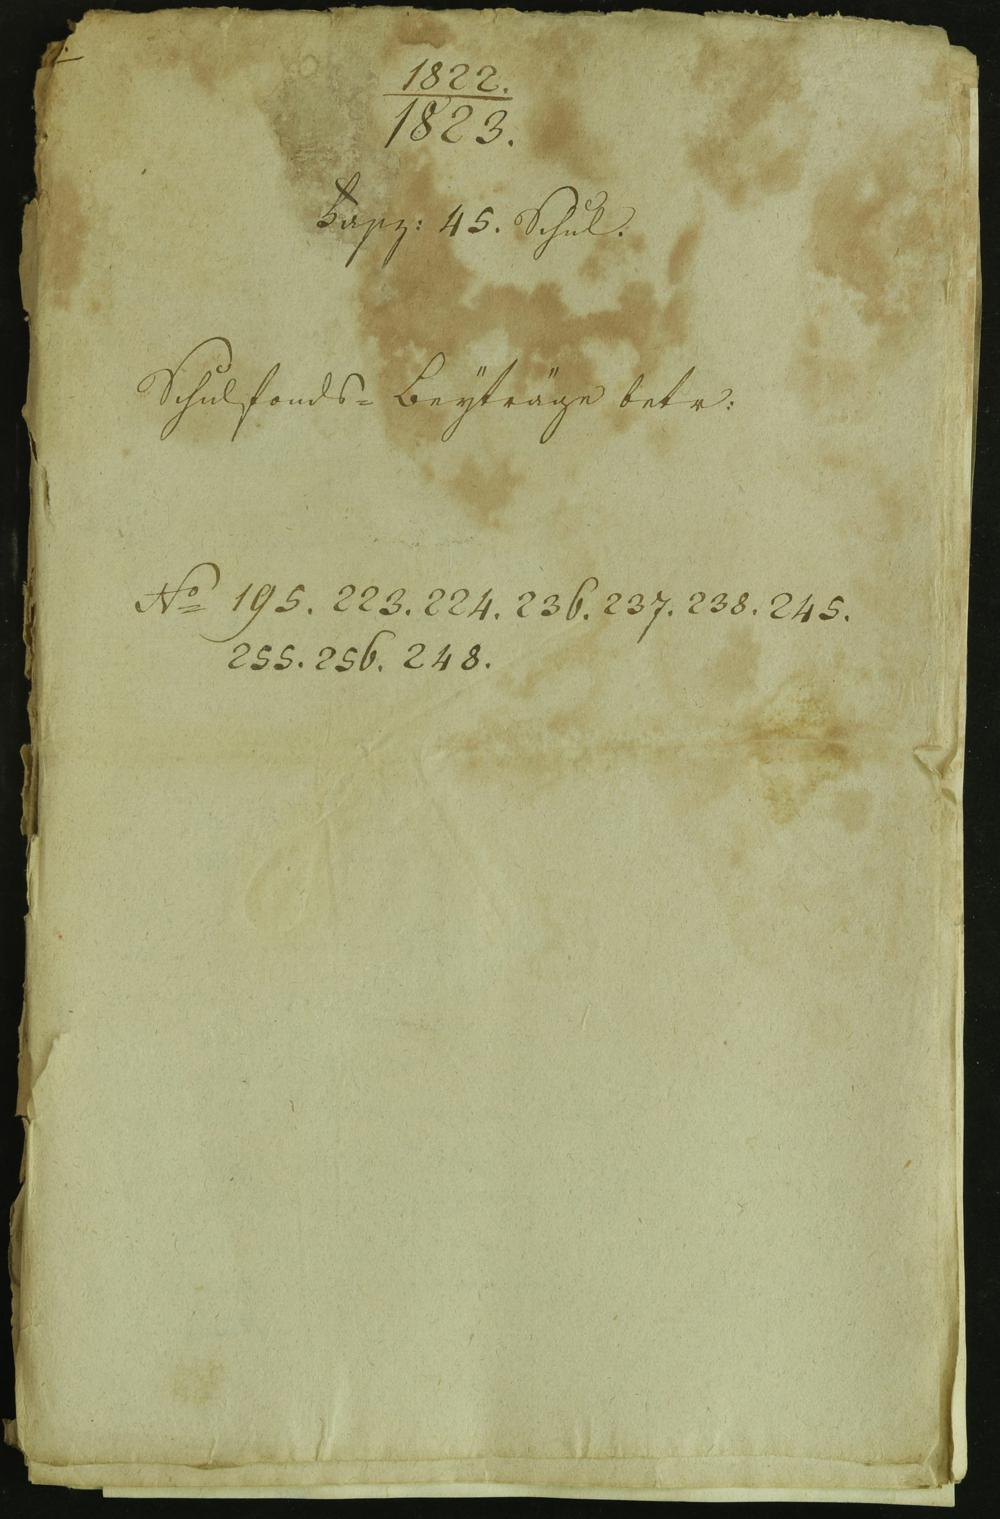 1822.
1823.
45. Schul:
Schulfonds= Beÿträge betr:
No 195. 223. 224. 236. 237. 238. 245.
255. 256. 248.